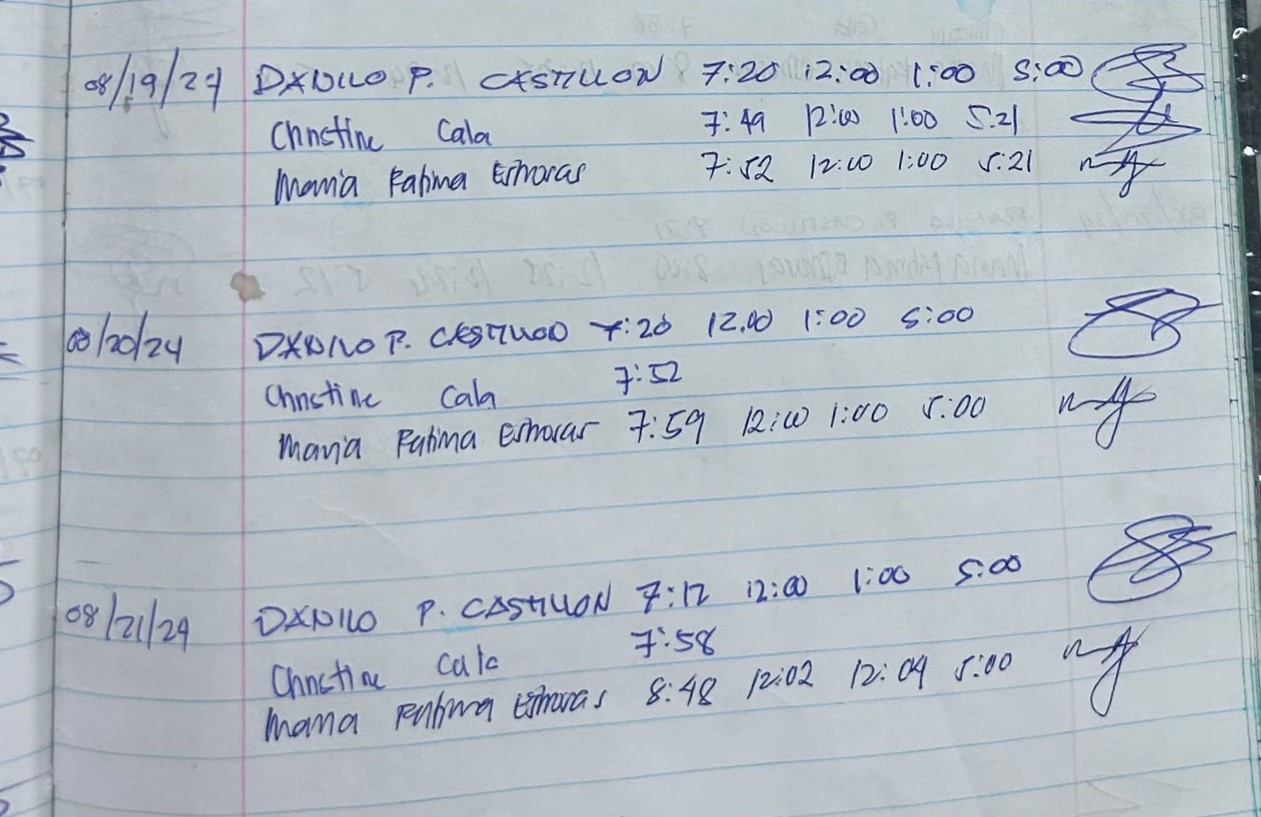 08/19/24 DANILO P. CASTILLON 7:20 12:00 1:00 5:00
Christine Cala 7:49 12:00 1:00 5:21
Maria Fatima Estioras 7:52 12:00 1:00 5:21
08/20/24 DANILO P. CASTILLON 7:20 12:00 1:00 5:00
Christine Cala 7:52
Maria Fatima 7:59 12:00 1:00 5:00
08/21/24 DANILO P. CASTILLON 7:12 12:00 1:00 5:00
Christine Cala 7:58
Maria Fatima 8:48 12:02 12:04 5:00